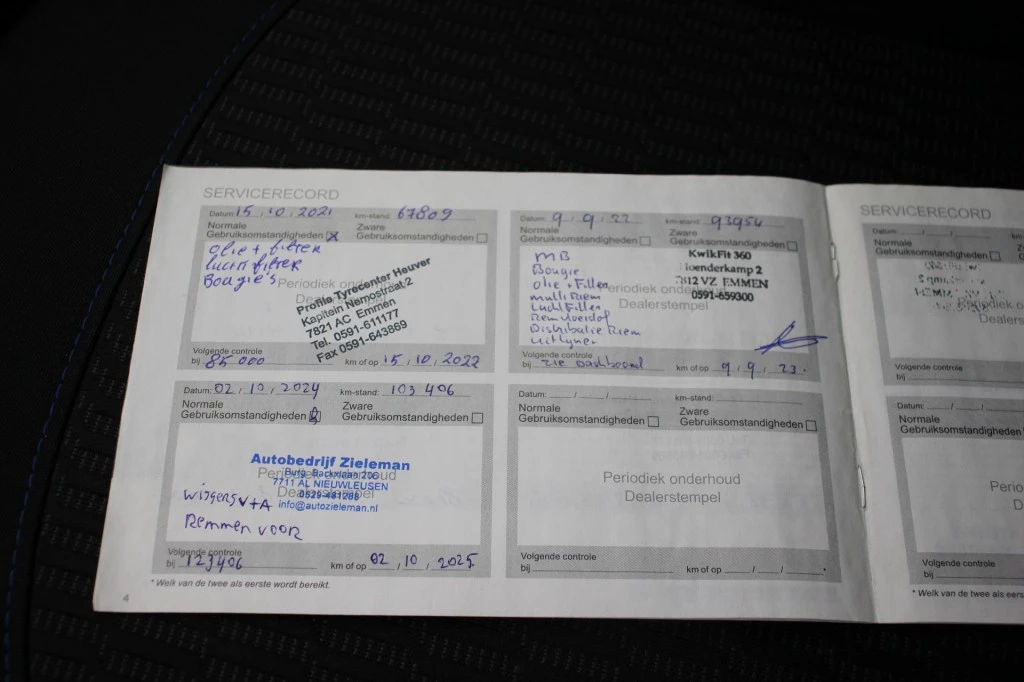 SERVICERECORD
Datum: 15 , 10 , 2021 km-stand: 67809
Normale
Gebruiksomstandigheden
Zware
Gebruiksomstandigheden
olie + filter
lucht filter
Bougie's
Periodiek onderhoud
Dealerstempel
Profile Tyrecenter Heuver
Kapitein Nemostraat 2
7821 AC Emmen
Tel. 0591-611177
Fax 0591-643869
Volgende controle
bij 85 000 km of op 15 , 10 , 2022
Datum: 9 , 9 , 22 km-stand: 93954
Normale
Gebruiksomstandigheden
Zware
Gebruiksomstandigheden
MB
Bougie
olie + Filter
multi Riem
Lucht Filter
Remvloeistof
Distributie Riem
uitlijnen
Periodiek onderhoud
Dealerstempel
KwikFit 360
Hoenderkamp 2
7812 VZ EMMEN
0591-659300
Volgende controle
bij zie Dashboord km of op 9 , 9 , 23.
Datum: 02 , 10 , 2024 km-stand: 103 406
Normale
Gebruiksomstandigheden
Zware
Gebruiksomstandigheden
Autobedrijf Zieleman
Periodiek onderhoud
Dealerstempel
7711 AL NIEUWLEUSEN
info@autozieleman.nl
wissers V+A
Remmen voor
Volgende controle
bij 123406 km of op 02 , 10 , 2025.
Datum: / / km-stand:
Normale
Gebruiksomstandigheden
Zware
Gebruiksomstandigheden
Periodiek onderhoud
Dealerstempel
Volgende controle
bij km of op / /
* Welk van de twee als eerste wordt bereikt.
4
SERVICERECORD
Datum: / /
Normale
Gebruiksomstandigheden
Volgende controle
bij
Datum: / /
Normale
Gebruiksomstandigheden
Volgende controle
bij
* Welk van de twee als eerste